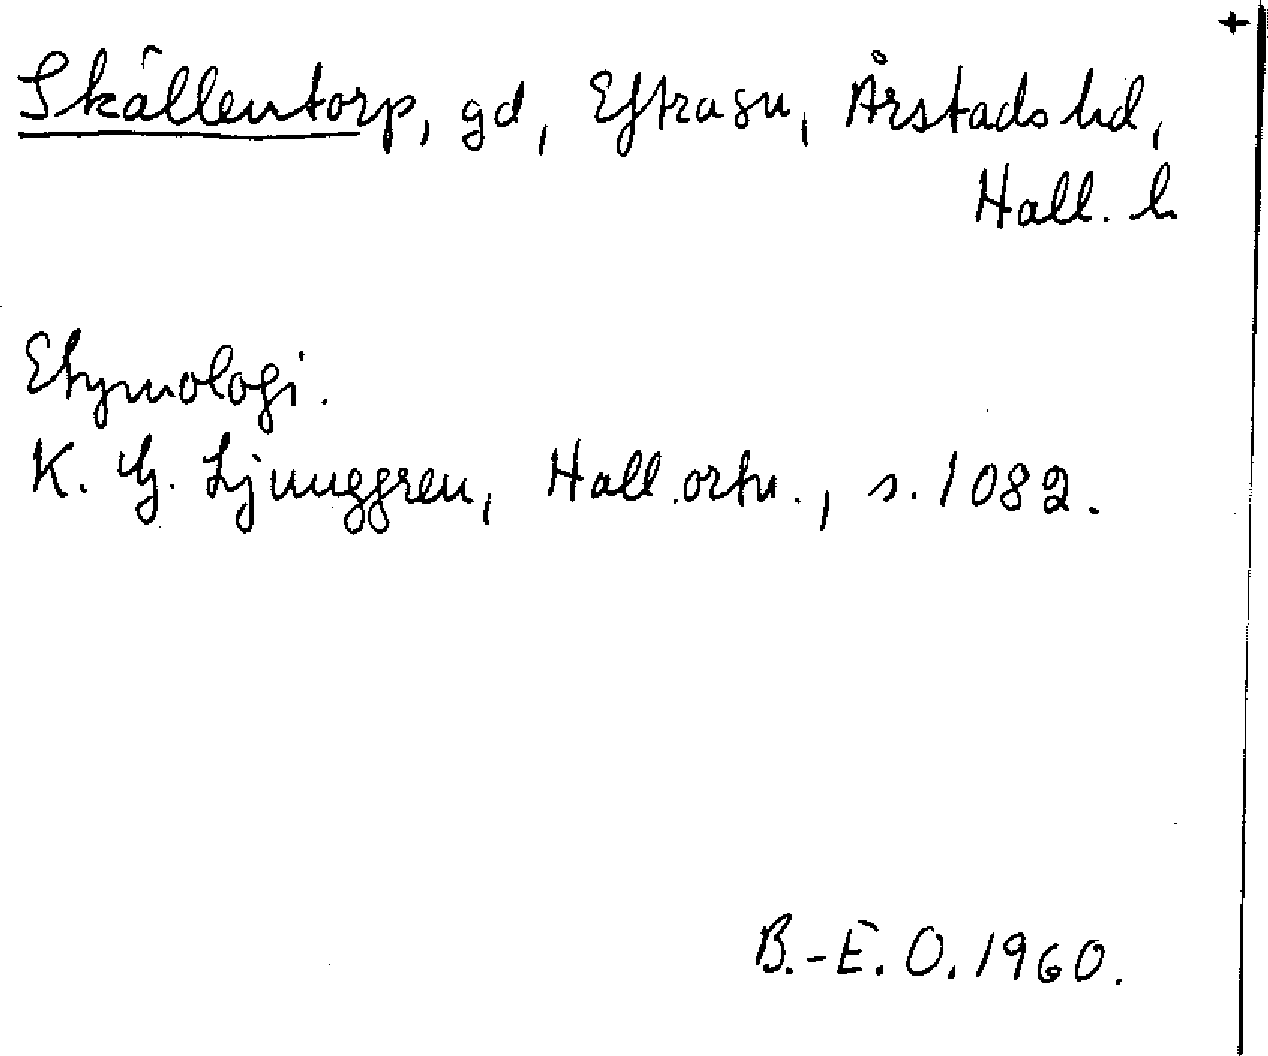 +
Skällentorp, gd, Eftra sn, Årstads hd,
Hall. l.
Etymologi.
K. G. Ljunggren, Hall. ortn., s. 1082.
B.-E. O. 1960.